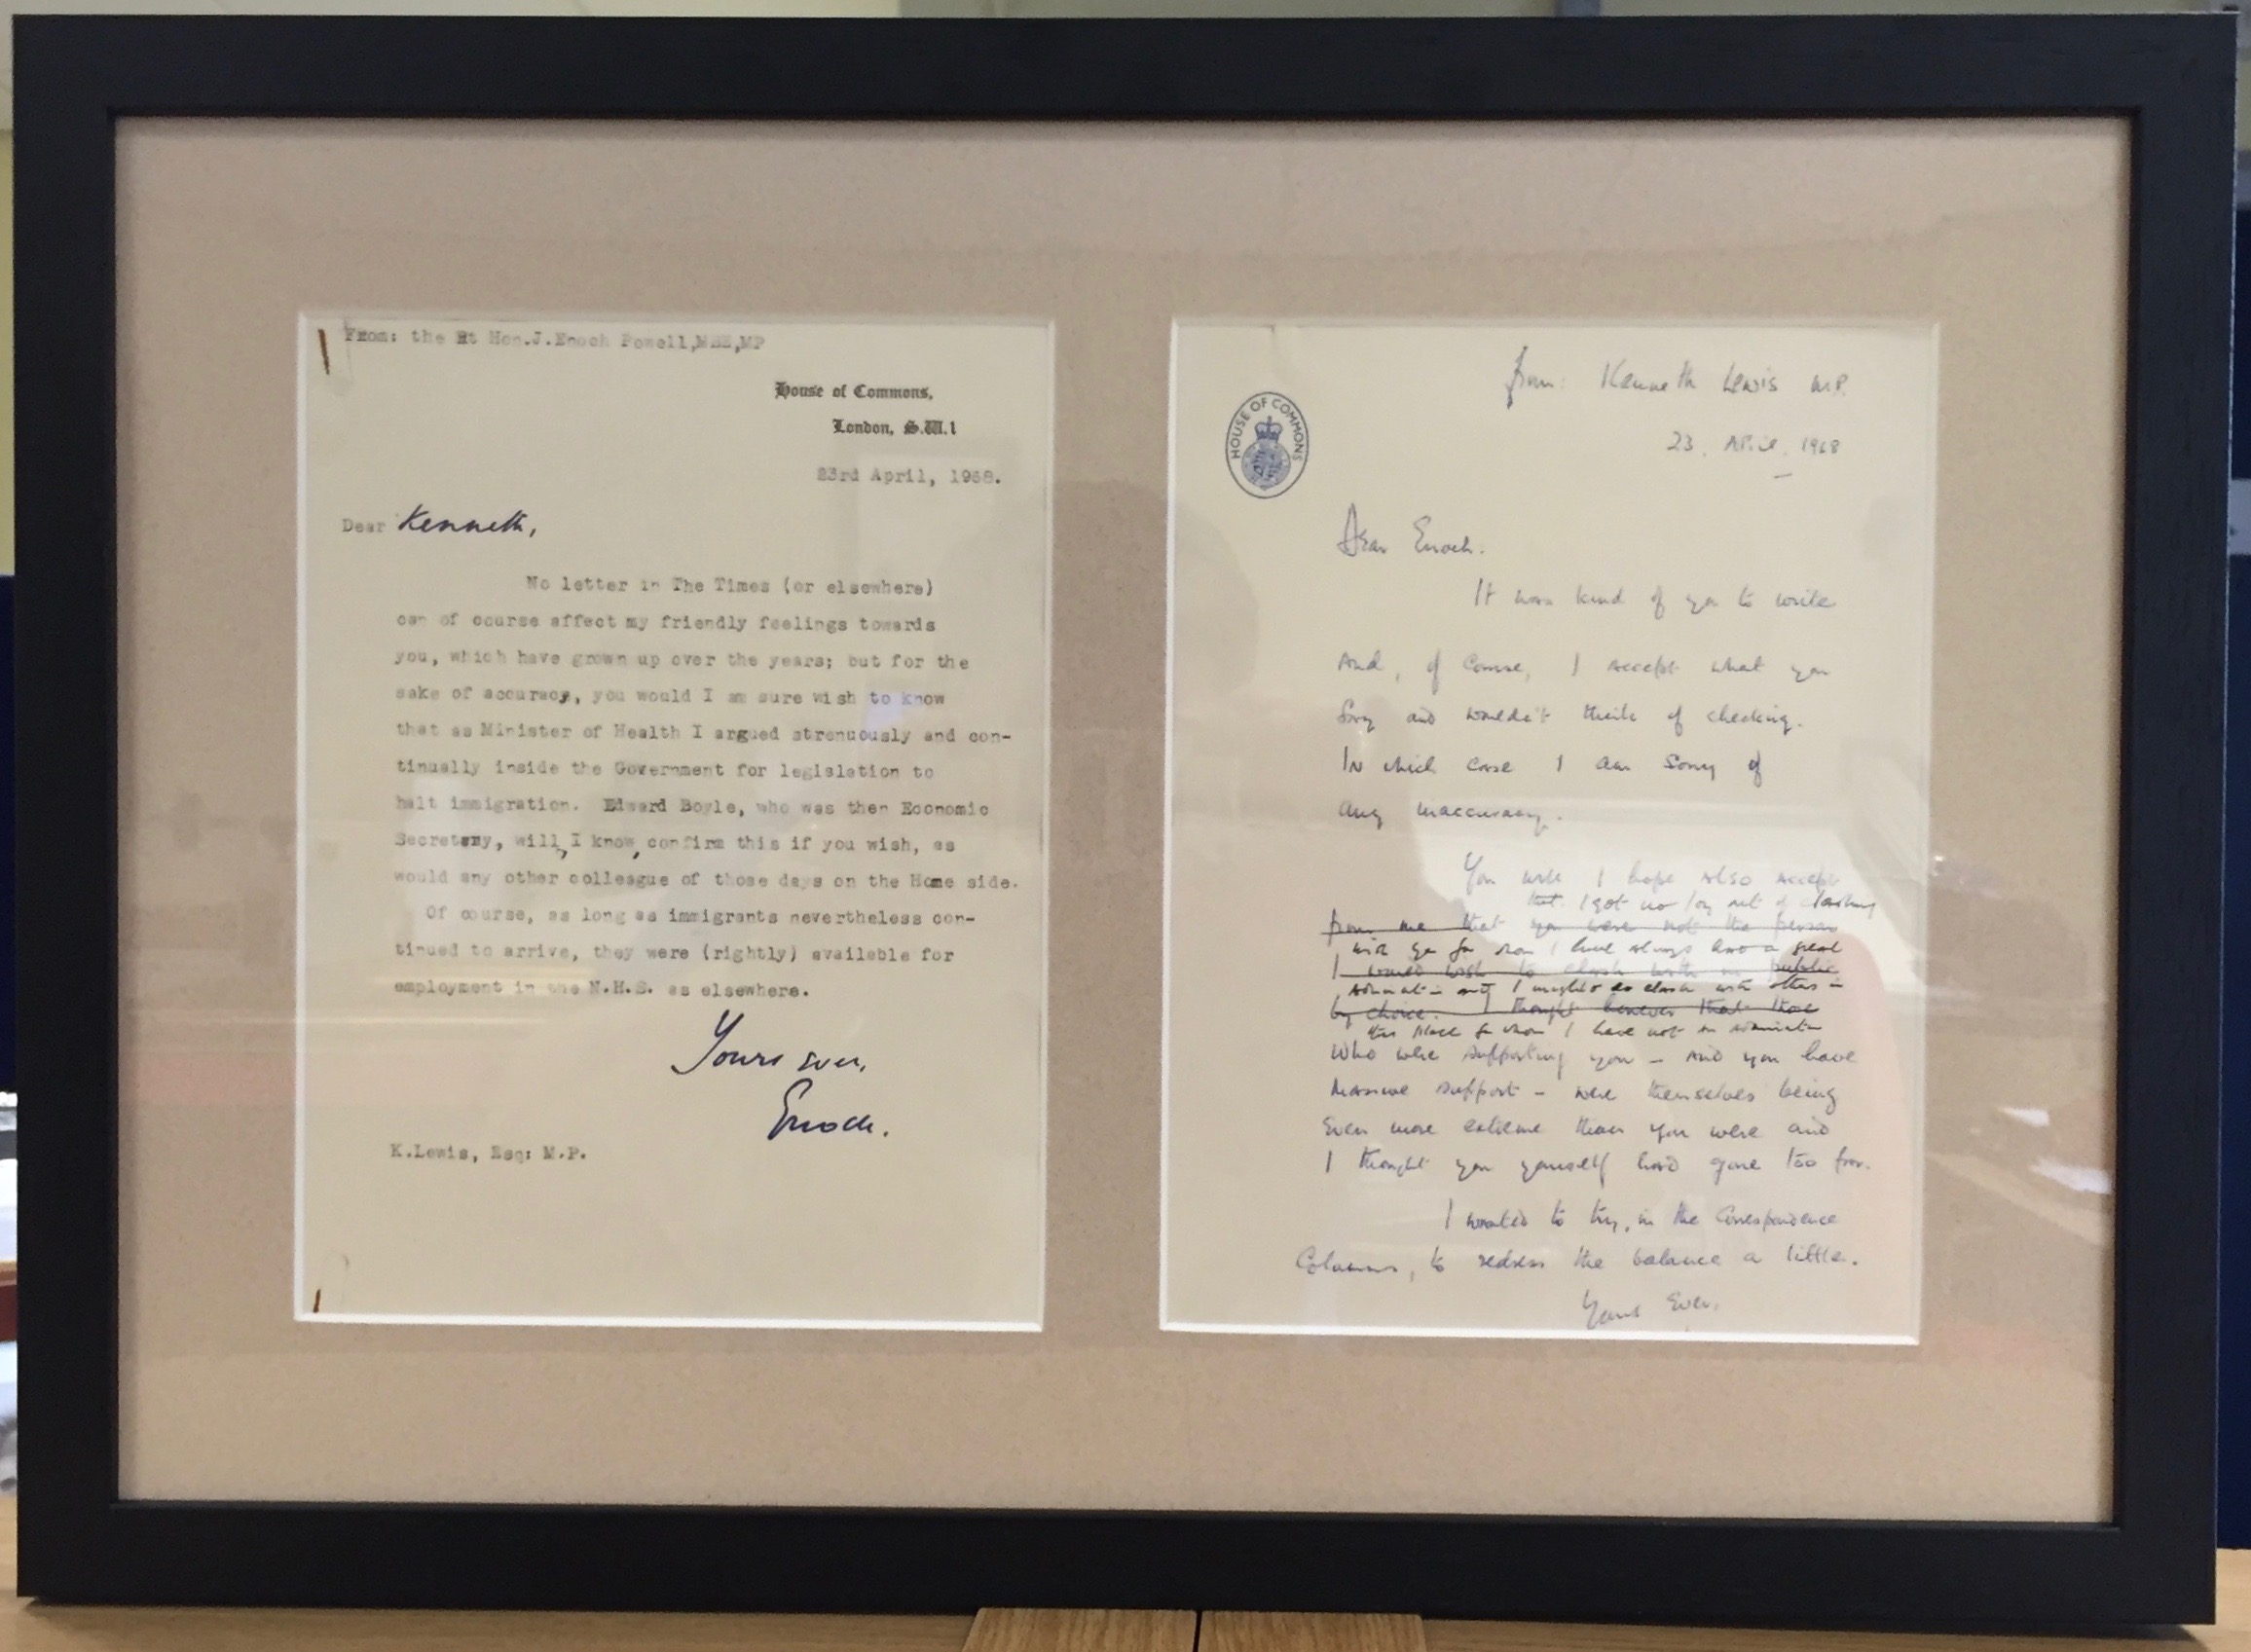 From: the Rt Hon.J.Enoch Powell,MBE,MP
House of Commons,
London, S.W.1
23rd April, 1968.
Dear Kenneth,
No letter in The Times (or elsewhere)
can of course affect my friendly feelings towards
you, which have grown up over the years; but for the
sake of accuracy, you would I am sure wish to know
that as Minister of Health I argued strenuously and con-
tinually inside the Government for legislation to
halt immigration. Edward Boyle, who was then Economic
Secretary, will, I know, confirm this if you wish, as
would any other colleague of those days on the Home side.
Of course, as long as immigrants nevertheless con-
tinued to arrive, they were (rightly) available for
employment in the N.H.S. as elsewhere.
Yours ever,
Enoch.
K.Lewis, Esq: M.P.
HOUSE OF COMMONS
from: Kenneth Lewis M.P.
23. April. 1968
Dear Enoch.
It was kind of you to write
And, of course, I accept what you
say and wouldn't think of checking.
In which case I am sorry of
any inaccuracy.
You will I hope also accept
that I got no joy out of clashing
from me that you were not the person
with you for whom I have always had a great
I would wish to clash with in public
admiration and I might so clash with others in
by choice. I thought however that those
this place for whom I have not an admiration
who were supporting you - and you have
massive support - were themselves being
even more extreme than you were and
I thought you yourself had gone too far.
I wanted to try, in the correspondence
columns, to redress the balance a little.
Yours Ever.